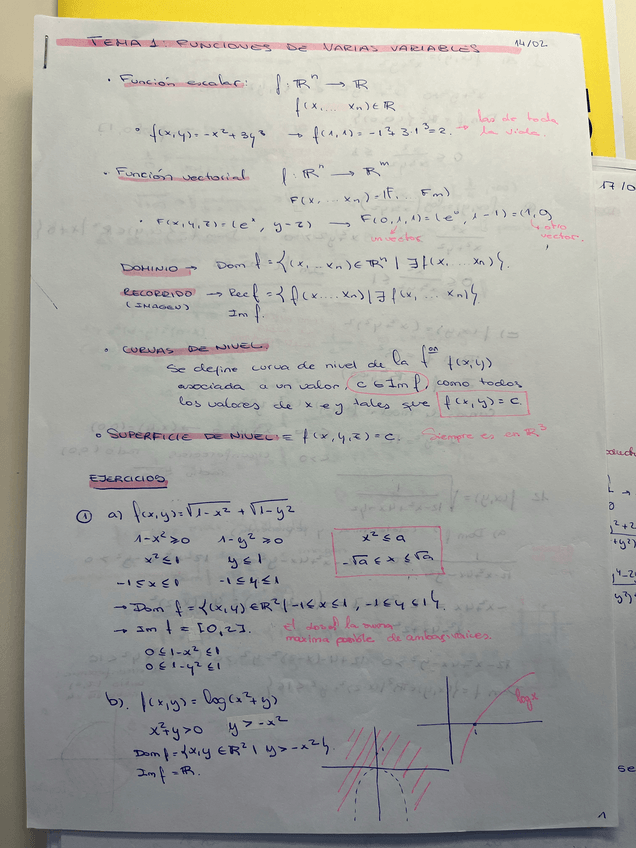 TEMA 1: FUNCIONES DE VARIAS VARIABLES 14/02
· Función escalar: f: ℝⁿ → ℝ
f(x, ... xn) ∈ ℝ
° f(x,y) = -x² + 3y³ → f(1,1) = -1² + 3·1³ = 2. → las de toda la vida.
· Función vectorial f: ℝⁿ → ℝᵐ
F(x, ... xn) = (F, ... Fm)
· F(x,y,z) = (eˣ, y-z) → F(0,1,1) = (e⁰, 1-1) = (1,0)
un vector
↳ otro vector.
DOMINIO → Dom f = {(x, ... xn) ∈ ℝⁿ | ∃ f(x, ... xn)}.
RECORRIDO → Rec f = {f(x, ... xn) | ∃ f(x, ... xn)}.
(IMAGEN) Im f.
· CURVAS DE NIVEL
Se define curva de nivel de la fᵒⁿ f(x,y)
asociada a un valor, c ∈ Im f, como todos
los valores de x e y tales que f(x,y) = c.
° SUPERFICIE DE NIVEL = f(x,y,z) = c. Siempre es en ℝ³
EJERCICIOS
① a) f(x,y) = √1-x² + √1-y²
1-x² ≥ 0 1-y² ≥ 0 x² ≤ a
x² ≤ 1 y ≤ 1 -√a ≤ x ≤ √a
-1 ≤ x ≤ 1 -1 ≤ y ≤ 1
→ Dom f = {(x,y) ∈ ℝ² | -1 ≤ x ≤ 1, -1 ≤ y ≤ 1}.
→ Im f = [0,2]. El 2 es la suma
máxima posible de ambas raíces.
0 ≤ 1-x² ≤ 1
0 ≤ 1-y² ≤ 1
b). f(x,y) = log(x²+y)
log x
x²+y > 0 y > -x²
1
Dom f = {x,y ∈ ℝ² | y > -x²}.
Im f = ℝ.
1
17/0
se